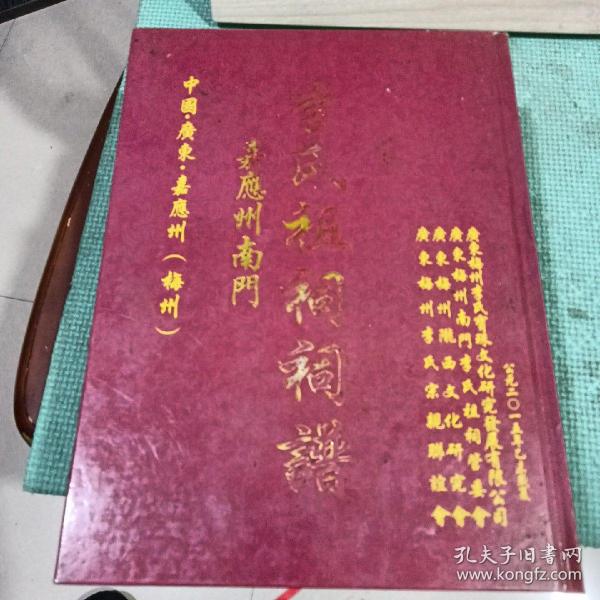 中國·廣東·嘉應州（梅州）
嘉應州南門
李氏祖祠祠譜
廣東梅州李氏寶珠文化研究發展有限公司
廣東梅州南門李氏祖祠管委會
廣東梅州隴西文化研究會
廣東梅州李氏宗親聯誼會
公元二〇一五年乙未
孔夫子旧书网
www.kongfz.com